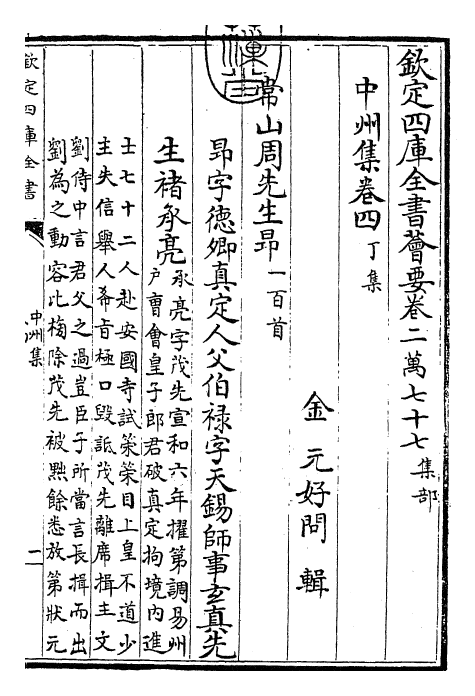 欽定四庫全書薈要卷二萬七十七 集部
中州集卷四 丁集
金 元好問 輯
常山周先生昂 一百首
昂字德卿真定人父伯祿字天錫師事玄真先
生褚承亮 承亮字茂先宣和六年擢第調易州
户曹會皇子郎君破真定拘境内進
士七十二人赴安國寺試策策目上皇不道少
主失信舉人希旨極口毀詆茂先離席揖主文
劉侍中言君父之過豈臣子所當言長揖而出
劉為之動容比榜除茂先被黜餘悉放第狀元
欽定四庫全書
中州集